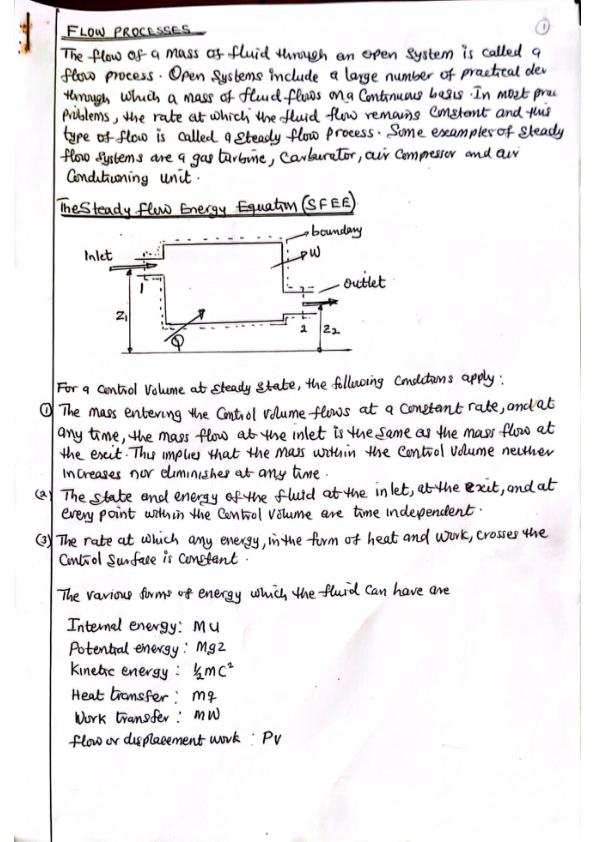 FLOW PROCESSES
1
The flow of a mass of fluid through an open system is called a
flow process. Open systems include a large number of practical dev
through which a mass of fluid flows on a continuous basis. In most prac
problems, the rate at which the fluid flow remains constant and this
type of flow is called a steady flow process. Some examples of steady
flow systems are a gas turbine, Carburator, air compressor and air
Conditioning unit.
The Steady flow Energy Equation (SFEE)
boundary
Inlet
W
outlet
1
Z1
2
Z2
Q
For a control volume at steady state, the following conditions apply:
① The mass entering the control volume flows at a constant rate, and at
any time, the mass flow at the inlet is the same as the mass flow at
the exit. This implies that the mass within the control volume neither
increases nor diminishes at any time.
(2) The state and energy of the fluid at the inlet, at the exit, and at
every point within the control volume are time independent.
(3) The rate at which any energy, in the form of heat and work, crosses the
Control Surface is constant.
The various forms of energy which the fluid can have are
Internal energy: Mu
Potential energy: Mgz
Kinetic energy: ½mC²
Heat transfer: mq
Work transfer: mW
flow or displacement work: Pv